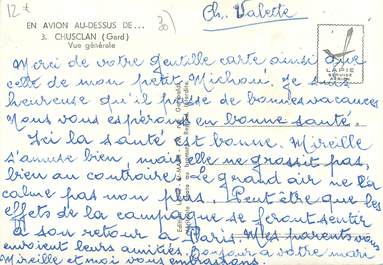 12 €
30
Ch. Valette
EN AVION AU-DESSUS DE...
3. CHUSCLAN (Gard)
Vue générale
LAPIE
SERVICE
Merci de votre gentille carte ainsi que
celle de mon petit Michoui. Je suis
heureuse qu'il passe de bonnes vacances
Nous vous espérons en bonne santé.
Ici la santé est bonne. Mireille
s'amuse bien, mais elle ne grossit pas,
bien au contraire. Le grand air ne la
calme pas non plus. Peut être que les
effets de la campagne se feront sentir
à son retour à Paris. Mes parents vous
envoient leurs amitiés. Bonjours à votre mari
Mireille et moi vous embrassons.